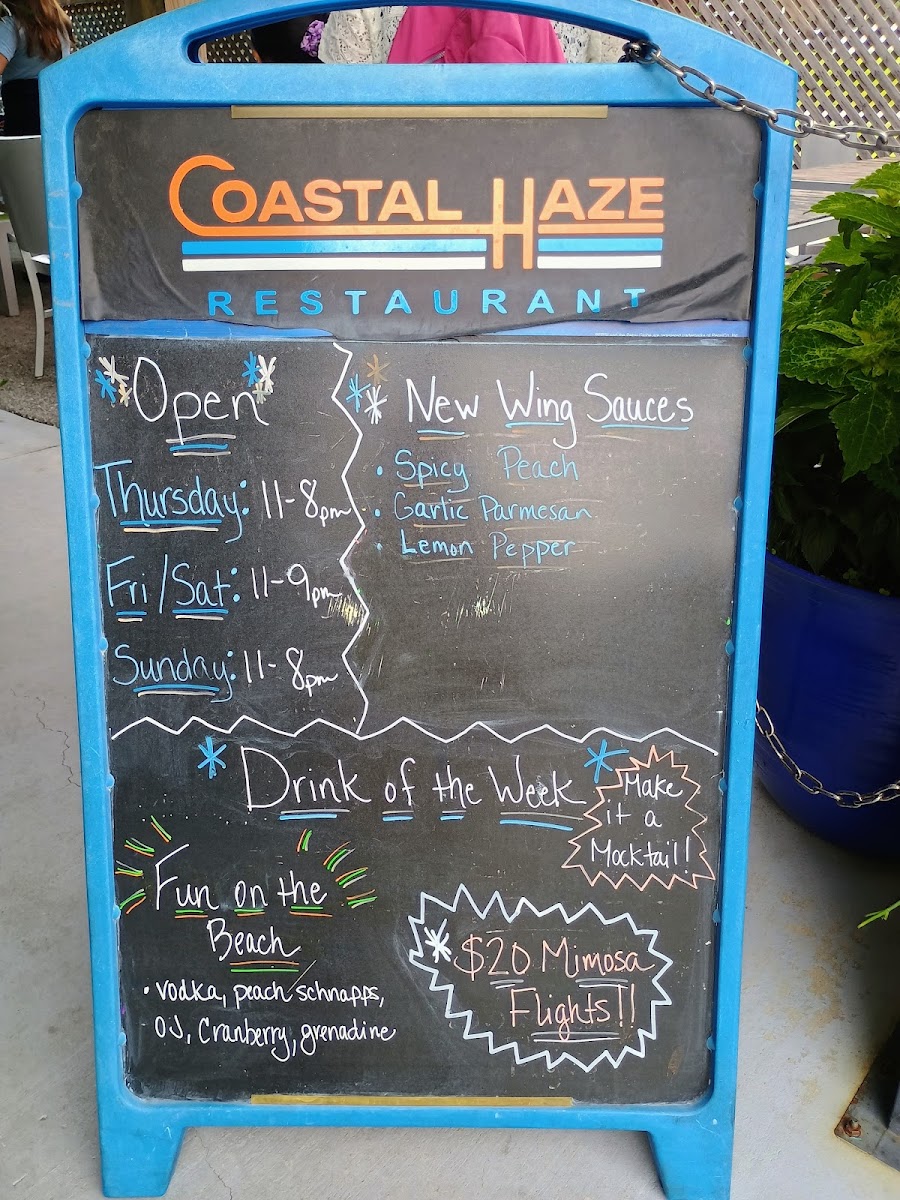 COASTAL HAZE
RESTAURANT
Open
Thursday: 11-8pm
Fri/Sat: 11-9pm
Sunday: 11-8pm
New Wing Sauces
• Spicy Peach
• Garlic Parmesan
• Lemon Pepper
Drink of the Week
Make
it a
Mocktail!
Fun on the
Beach
• vodka, peach schnapps,
OJ, Cranberry, grenadine
$20 Mimosa
Flights!!